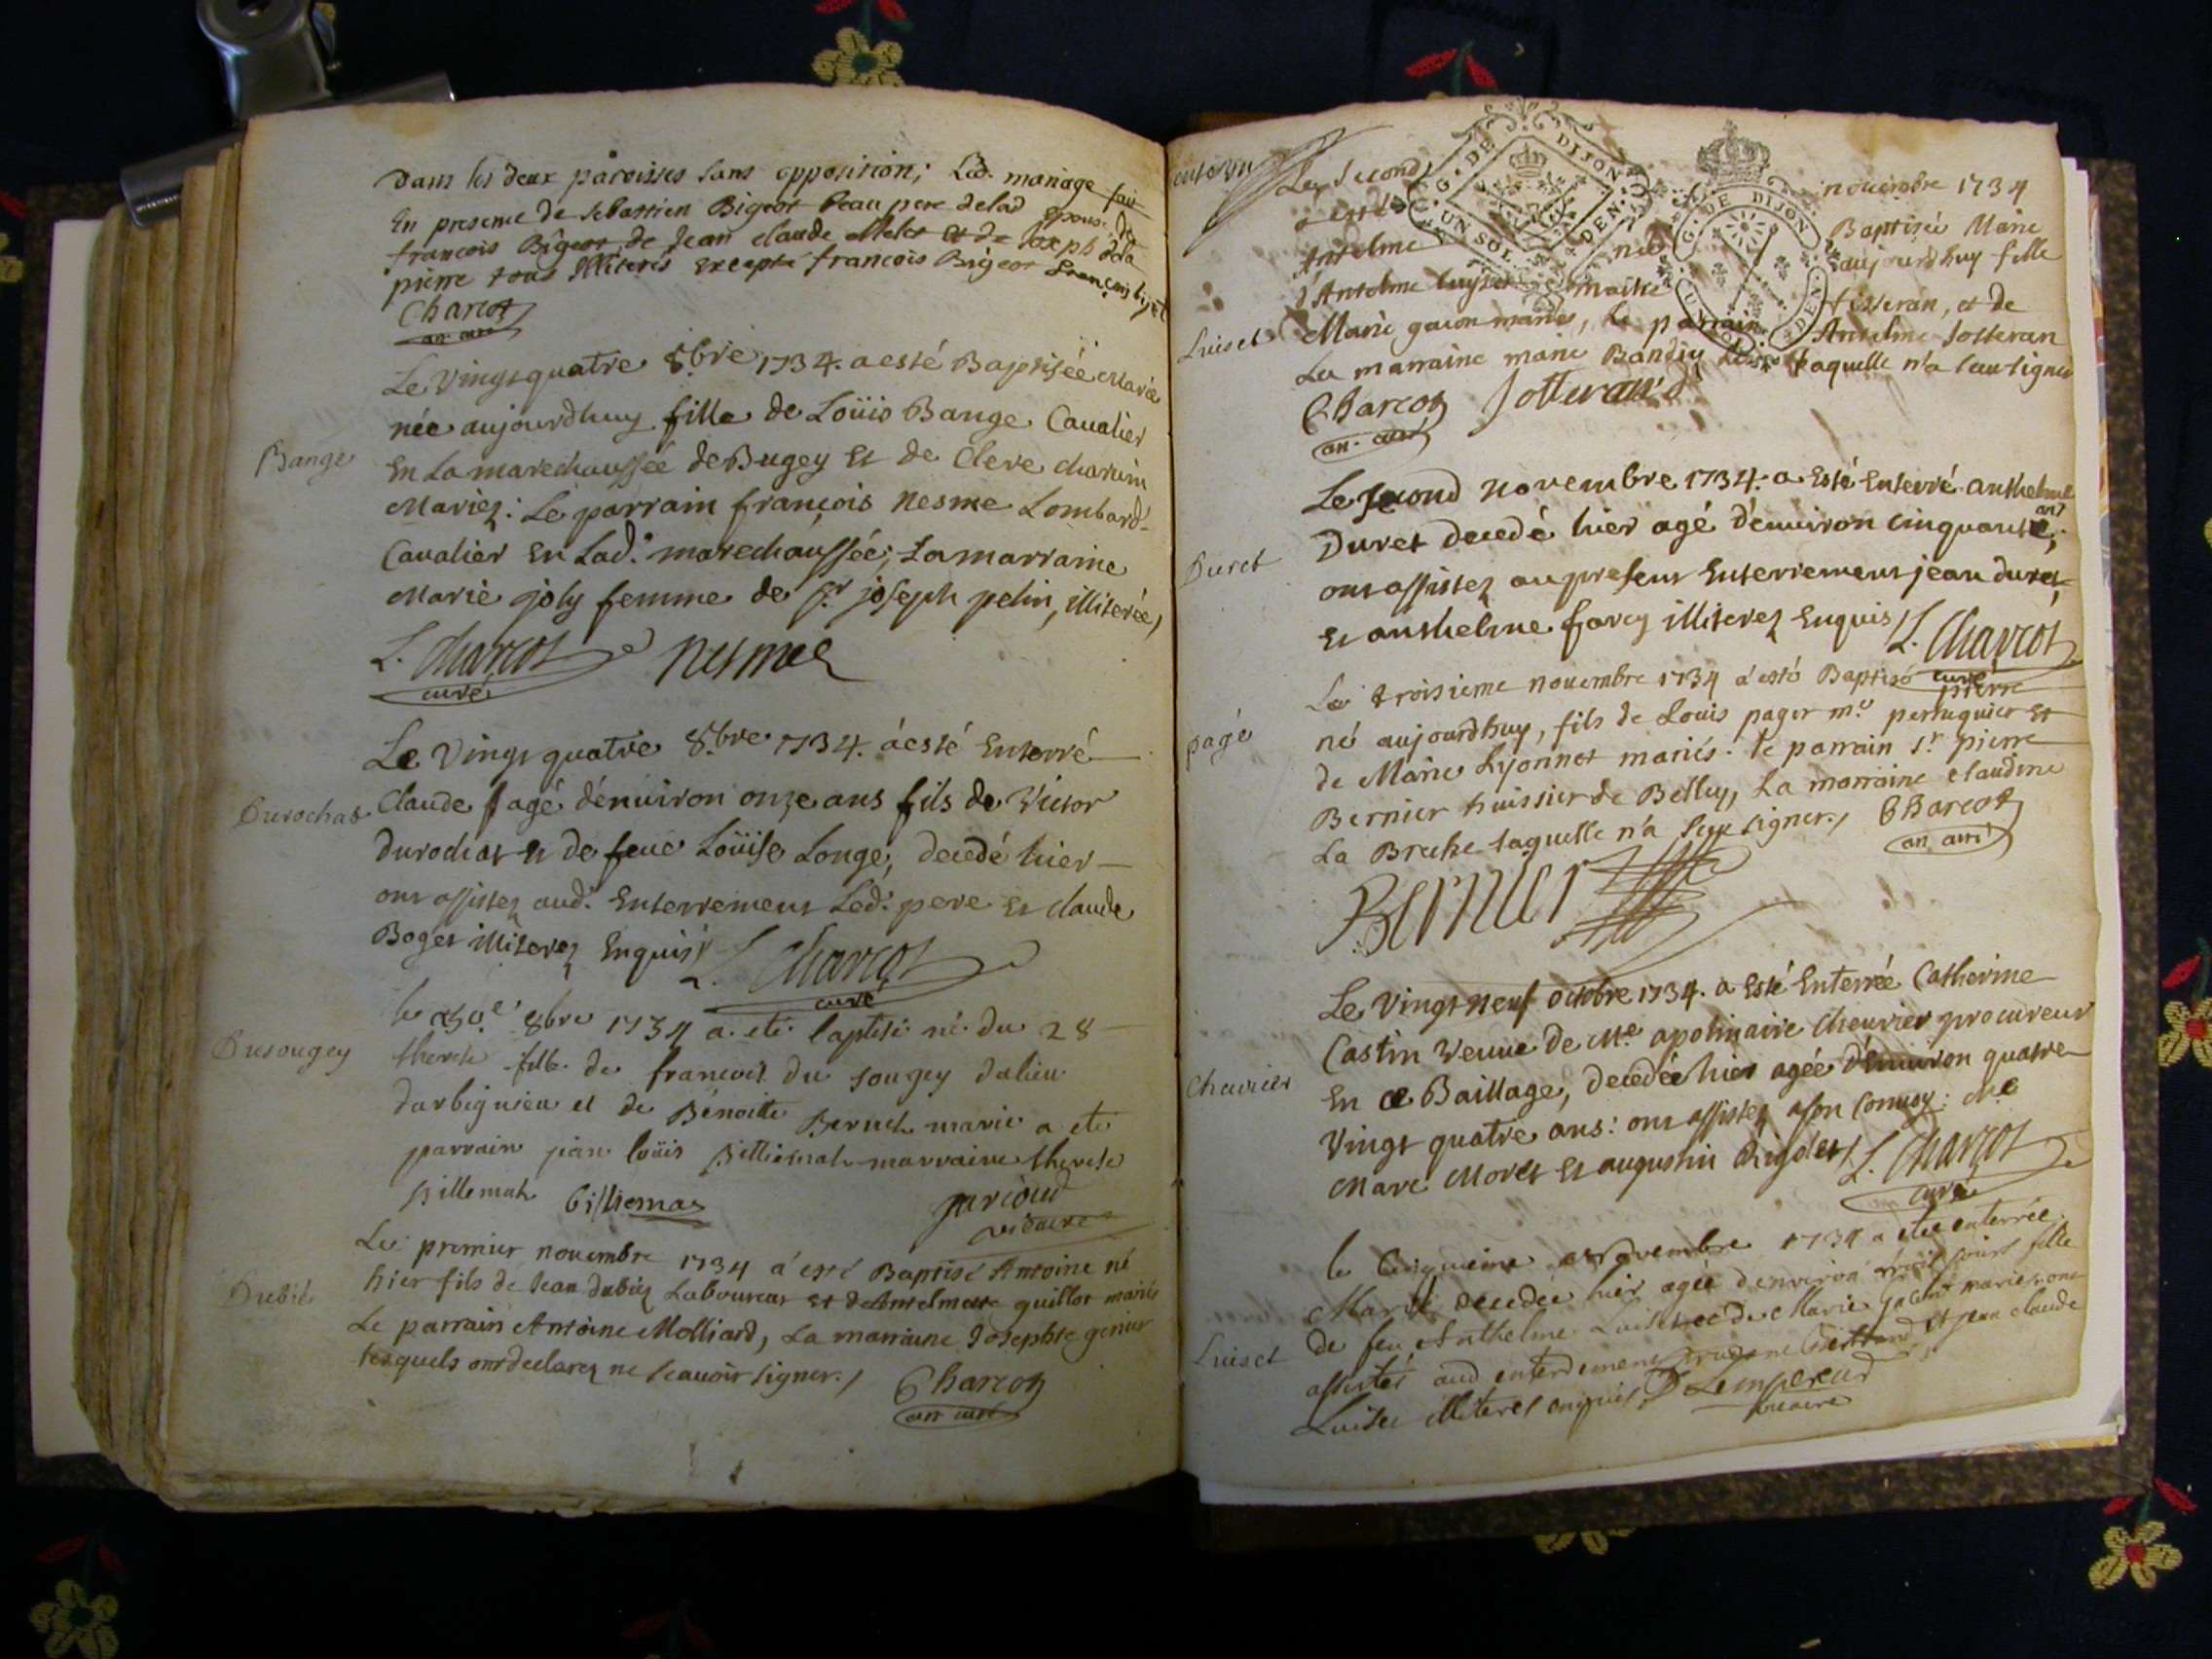 Dans les deux paroisses sans opposition; Led. mariage fait
En presence de sebastien Bigeot beau pere delad epouse, de
francois Bigeot, de Jean claude Melet et de Joseph dela
pierre tous Illiterés excepté francois Bigeot françois bijot
Charcot
an. curé
Bange
Le Vingt quatre 8.bre 1734. a esté Baptisée Marie
née aujourdhuy fille de Loüis Bange Caualier
En La marechaussée de Bugey Et de Clere charuin
Mariez: Le parrain françois Nesme Lombard-
Caualier En Lad.e marechaussée; La marraine
Marie joly femme de Sr joseph pelin, illiterée,
L. Charcot Nesme
curé
Durochat
Le Vingt quatre 8.bre 1734. a esté Enterré
Claude agé d'enuiron onze ans fils de Victor
durochat et de feue Loüise Longe, decedé hier
ont assistez aud. Enterrement Led. pere Et claude
Boget illiterez Enquis
L. Charcot
curé
Dusougey
le 30e 8bre 1734 a. eté baptisé né du 28
therese fille de francois du sougey dulieu
darbignieu et de Benoitte marié a eté
parrain jean loüis Billiemat marraine therese
Billemat Billiemas jarioud
vicaire
Dubié
Le premier nouembre 1734 a esté Baptisé Antoine né
hier fils de Jean dubiez Laboureur et de Antelmette guillot mariés
Le parrain Antoine Molliard, La marraine Josephte genier
lesquels ont declarez ne scauoir signer./ Charcot
an curé
Luiset
Le Second nouembre 1734
a esté Baptisée Marie
Antelme née aujourdhuy fille
d'Antelme luyset maitre tisseran, et de
Marie gacon mariés, Le parrain Anselme Sotteran
La marraine marie Bandey laquelle n'a sceu signer
Charcot Sotteran
an. curé
G. DE DIJON
UN SOL
DEN.
G. DE DIJON
UN SOL
DEN
Duret
Le second novembre 1734. a Esté Enterré anthelme
Duret decedé hier agé d'enuiron cinquante ans,
ont assistez au present Enterrement jean duret,
Et anthelme farcy illiterez Enquis
L. Charcot
curé
pagé
Le troisieme nouembre 1734 a esté Baptisé pierre
né aujourdhuy, fils de Louis pager m.e perruquier et
de Marie Lyonnet mariés. le parrain s.r pierre
Bernier huissier de Belley, La marraine claudine
La Breche laquelle n'a sceu signer./ Charcot
an curé
Bernier
Chevrier
Le Vingt neuf octobre 1734. a Esté Enterrée Catherine
Castin veuue de Me. apolinaire Cheurier procureur
En ce Baillage, decedée hier agée d'enuiron quatre
Vingt quatre ans: ont assistez a son Conuoy: Me
Marc Moret Et augustin Rigolet
L. Charcot
curé
Luiset
le Cinquieme Novembre 1734 a eté enterrée
Marie decedée hier agée denviron trois jours fille
de feu Anthelme Luiset et de Marie gacon mariez, ont
assistés aud enterrement et jean claude
Luiset illiteres enquis Lempereur
vicaire